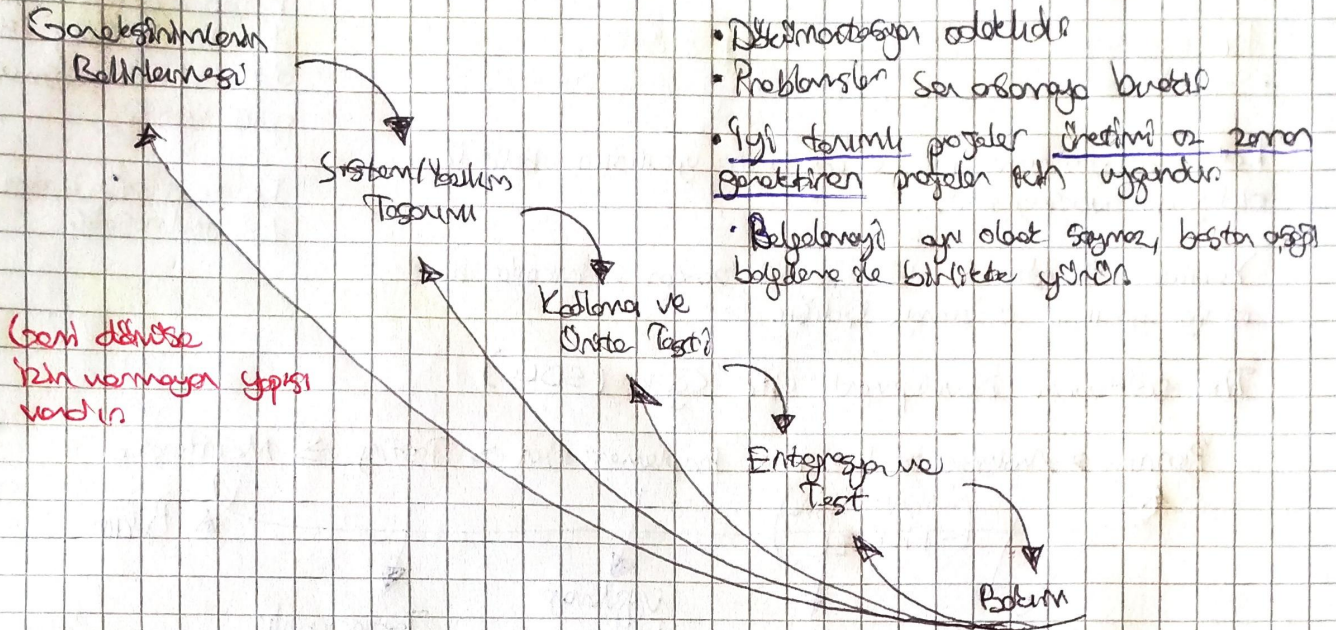 Gereksinimlerin
Belirlenmesi
Sistem/Yazılım
Tasarımı
Kodlama ve
Ünite Testi
Entegrasyon ve
Test
Bakım
Geri dönüşe
izin vermeyen yapısı
vardır
• Dökümantasyon odaklıdır
• Problemleri son aşamaya bırakır
• İyi tanımlı projeler üretimi az zaman
gerektiren projeler için uygundur.
• Belgelemeyi ayrı olarak saymaz, baştan aşağı
belgeleme ile birlikte yürür.